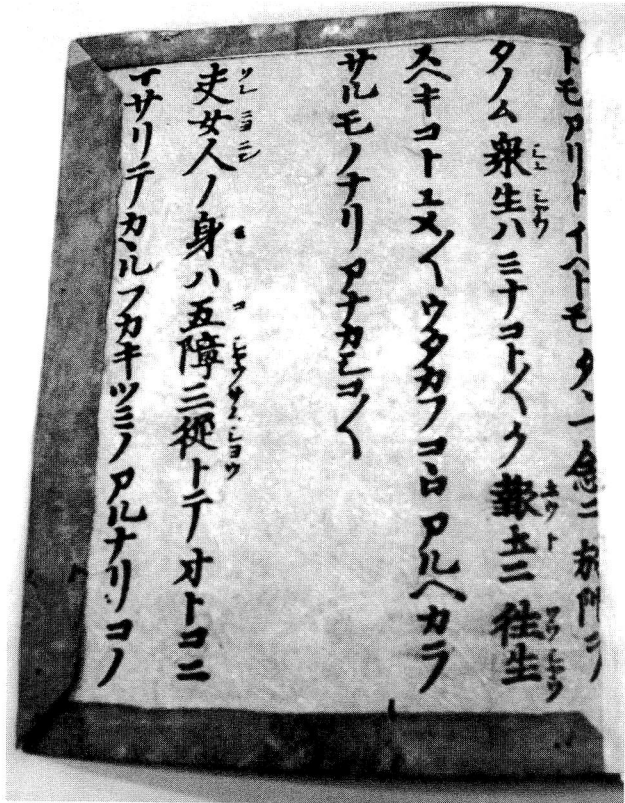 トモアリトイヘトモタヽ一念ニ弥陁ヲ
タノム衆生ハミナコト〱ク報土ニ往生
スヘキコトユメ〱ウタカフコヽロアルヘカラ
サルモノナリアナカシコ〱
夫女人ノ身ハ五障三從トテオトコニ
マサリテカヽルフカキツミノアルナリコノ